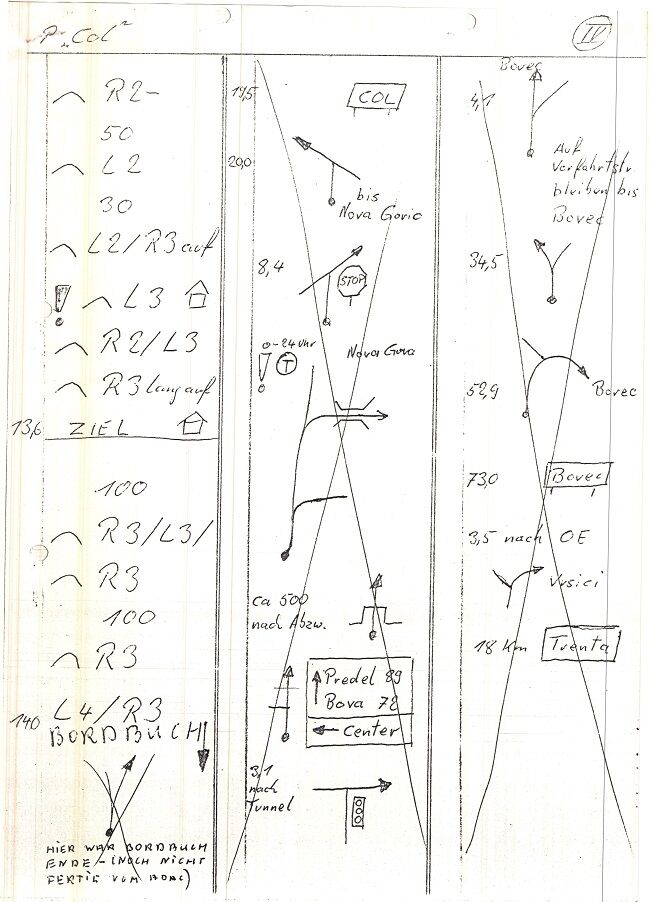 P "Col"
IV
R2-
50
L2
30
L2/R3 auf
! L3
R2/L3
R3 lang auf
13,6 ZIEL
100
R3/L3/
R3
100
R3
140 L4/R3
BORDBUCH
HIER WAR BORDBUCH
ENDE - (NOCH NICHT
FERTIG VOM ADAC)
19,5 COL
20,0
bis
Nova Gorica
8,4
STOP
0-24 Uhr
T
Nova Gora
ca 500
nach Abzw.
Predel 89
Bova 72
Center
3,1
nach
Tunnel
Bovec
4,1
Auf
Vorfahrtstr
bleiben bis
Bovec
34,5
52,9
Bovec
73,0 Bovec
3,5 nach OE
Vrsici
18 km Trenta